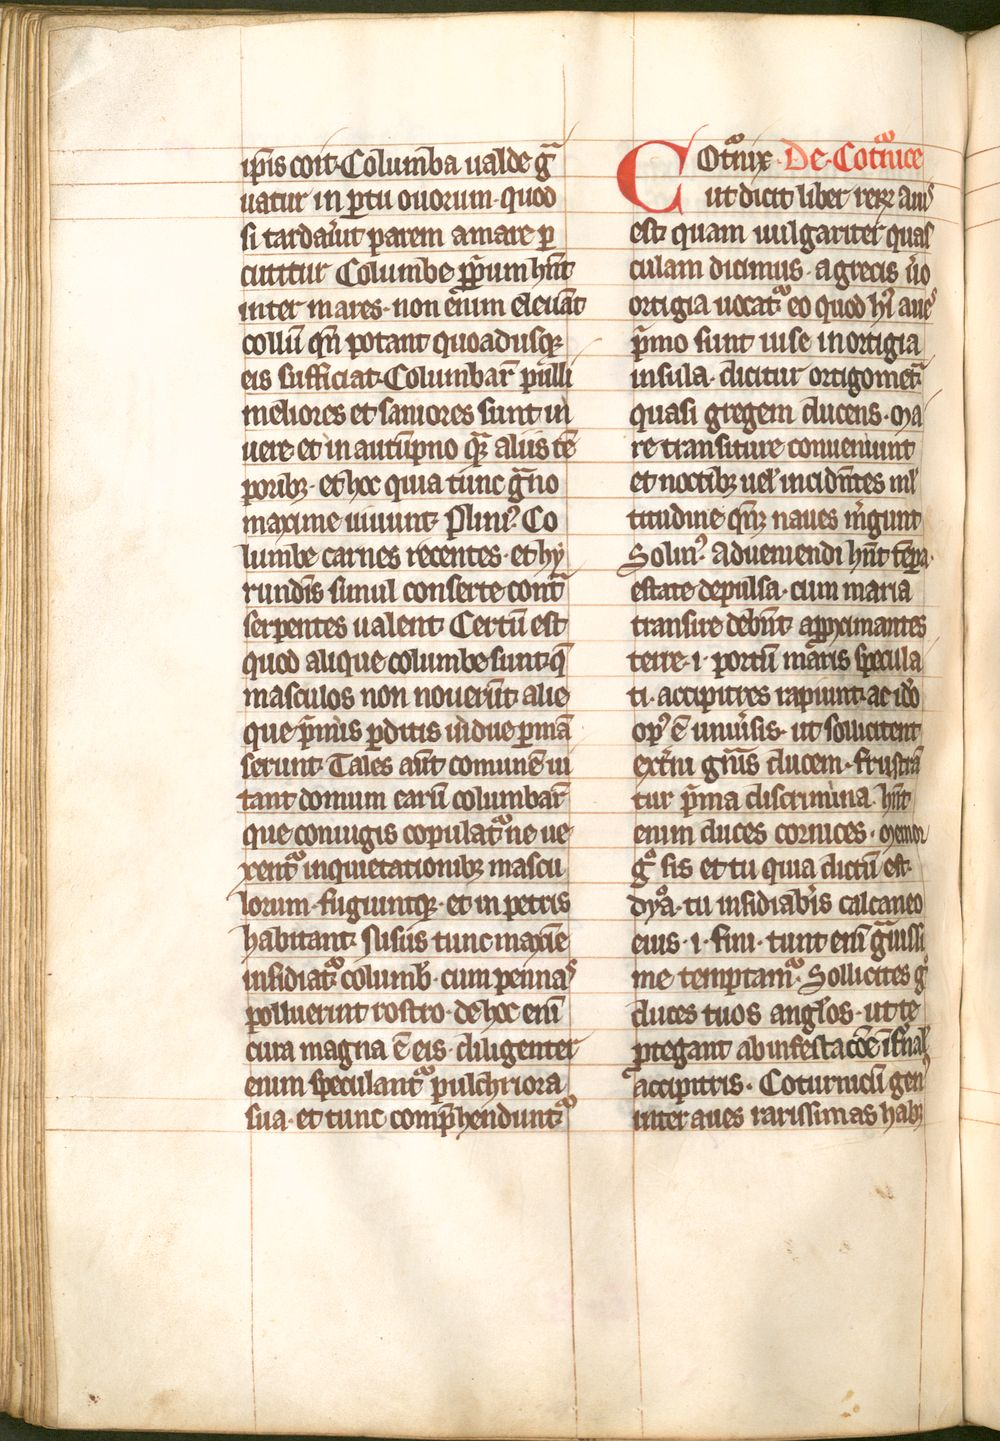 ip̄is coit. Colum̄ba ualde g̃
uatur in ꝑtu ouorum. quod
si tardau̾it parem amare ꝑ
cutitur Columbe pp̄um hn̄t
inter mares. non em̄m eleuāt
collū qn̄ potant quoadusqꝫ
eis sufficiat. Columbar̄ pulli
meliores et saniores sunt in
uere et in autūpno qꝫ aliis tē
poribꝫ. et hoc quia tunc g̃no
maxime uiuunt. Pliniꝰ. Co
lumbe carnes recentes. et hy
rundīs simul conserte cont̄
serpentes ualent. Certū est
quod alique columbe sunt. q̄
masculos non nouerūt. alie
que p̄mis ꝑditis uidue ꝑmā
serunt. Tales aūt comunē ui
tant domum earū columbar̄
que coniugis copulat᷑. ne ue
xent᷑ inquietationibꝫ mascu
lorum. fugiuntqꝫ. et in petris
habitant. Nisus tunc maxīe
insidiat᷑ columb̄. cum pennas
polluerint rostro. de hoc enī
cura magna ē eis. diligenter
enim speculant᷑ pulchriora
sua. et tunc comp̄hendunt᷑
Cot᷑nix. De. Cot᷑nice
ut dicit liber reꝝ auis
est. quam uulgariter quas
culam dicimus. a grecis u̾o
ortigia uocat᷑ eo quod hee aues
p̄mo sunt uise in ortigia
insula. dicitur ortigomet̃
quasi gregem ducens. ma
re transiture conueniunt
et noctibꝫ uel incidn̄tes ml̄
titudine naues m̾gunt
Solinꝰ. adueniendi hn̄t tēpa.
estate depulsa. cum maria
transire debn̄t. appximantes
terre. i. portū maris specula
ti. accipitres rapiunt. ac id̊o
opꝰ ē uniu̾sis. ut sollicitent
ext̾ni gn̄is ducem. frustrā
tur p̄ma discrimina. hn̄t
enim duces cornices. memor
g̊ sis et tu quia dictū est.
dyā. tu insidiab̾is calcaneo
eius. i. fini. tunt em̄ g̃uissi
me temptam᷑. Sollicites g̊
duces tuos angl̾os. ut te
ꝓtegant ab infestacōe īfnal̾
accipitris. Coturnicū genꝰ
inter aues rarissimas habꝫ